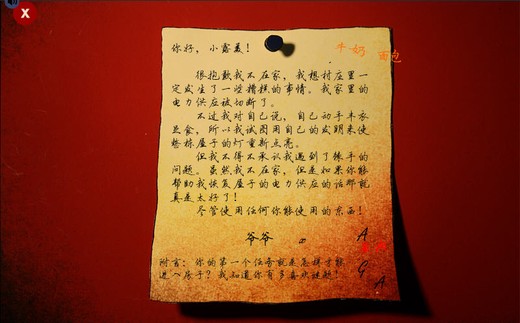 你好，小露美！
牛奶 面包
很抱歉我不在家，我想村庄里一
定发生了一些糟糕的事情。我家里的
电力供应被切断了。
不过我对自己说，自己动手丰衣
足食，所以我试图用自己的发明来使
整栋屋子的灯重新点亮。
但我不得不承认我遇到了棘手的
问题。虽然我不在家，但是如果你能
帮助我恢复屋子的电力供应的话那就
真是太好了！
尽管使用任何你能使用的东西！
爷爷
A
G
A
附言：你的第一个任务就是怎样才能
进入房子？我知道你有多喜欢谜题！